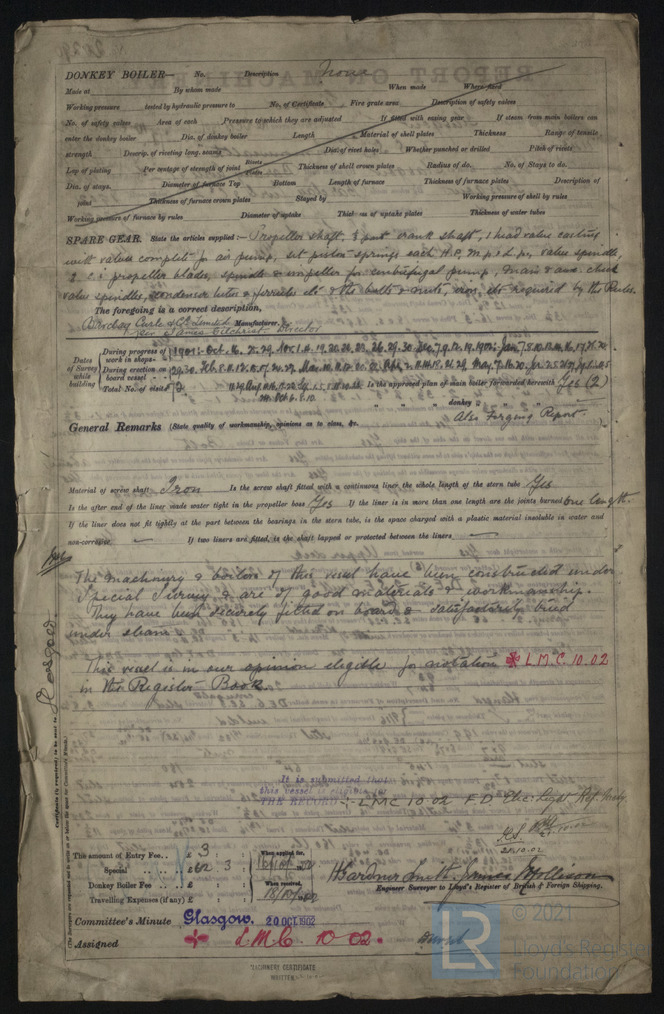 DONKEY BOILER— No. Description None
Made at By whom made When made Where fixed
Working pressure tested by hydraulic pressure to No. of Certificate Fire grate area Description of safety valves
No. of safety valves Area of each Pressure to which they are adjusted If fitted with easing gear If steam from main boilers can
enter the donkey boiler Dia. of donkey boiler Length Material of shell plates Thickness Range of tensile
strength Descrip. of riveting long. seams Dia. of rivet holes Whether punched or drilled Pitch of rivets
Lap of plating Per centage of strength of joint Rivets Plates Thickness of shell crown plates Radius of do. No. of Stays to do.
Dia. of stays. Diameter of furnace Top Bottom Length of furnace Thickness of furnace plates Description of
joint Thickness of furnace crown plates Stayed by Working pressure of shell by rules
Working pressure of furnace by rules Diameter of uptake Thickness of uptake plates Thickness of water tubes
SPARE GEAR. State the articles supplied:— Propeller shaft, 1/3 part crank shaft, 1 head valve casting
with valves complete for air pump, set piston springs each H.P. M.P. & L.P., valve spindle,
2 C.I. propeller blades, spindle & impeller for centrifugal pump, main & aux. check
valve spindles, condenser tubes & ferrules & the bolts & nuts, iron, etc required by the Rules.
The foregoing is a correct description,
Barclay Curle & Co Limited Manufacturer.
James Gilchrist Director
Dates of Survey while building
During progress of work in shops—
During erection on board vessel—
Total No. of visits 72 Is the approved plan of main boiler forwarded herewith Yes (2)
" " " donkey " " "
Also Forging Report.
General Remarks (State quality of workmanship, opinions as to class, &c.
Material of screw shaft Iron Is the screw shaft fitted with a continuous liner the whole length of the stern tube Yes
Is the after end of the liner made water tight in the propeller boss Yes If the liner is in more than one length are the joints burned one length.
If the liner does not fit tightly at the part between the bearings in the stern tube, is the space charged with a plastic material insoluble in water and
non-corrosive — If two liners are fitted, is the shaft lapped or protected between the liners —
The machinery & boilers of this vessel have been constructed under
Special Survey & are of good materials & workmanship.
They have been securely fitted on board & satisfactorily tried
under steam.
This vessel is in our opinion eligible for notation * L.M.C. 10.02
in the Register Book
Glasgow
It is submitted that
this vessel is eligible for
THE RECORD + LMC 10.02 F.D. Elec: Light
20.10.02
The amount of Entry Fee.. £ 3 : :
Special .. .. £ 62 : 3 :
Donkey Boiler Fee .. .. £ : :
Travelling Expenses (if any) £ : :
When applied for,
When received,
18/10/02
H. Gardner Smith. James Mollison
Engineer Surveyor to Lloyd's Register of British & Foreign Shipping.
Committee's Minute Glasgow. 20 OCT. 1902
Assigned + L.M.C 10.02.
MACHINERY CERTIFICATE
WRITTEN
© 2021
LR
Lloyd's Register
Foundation